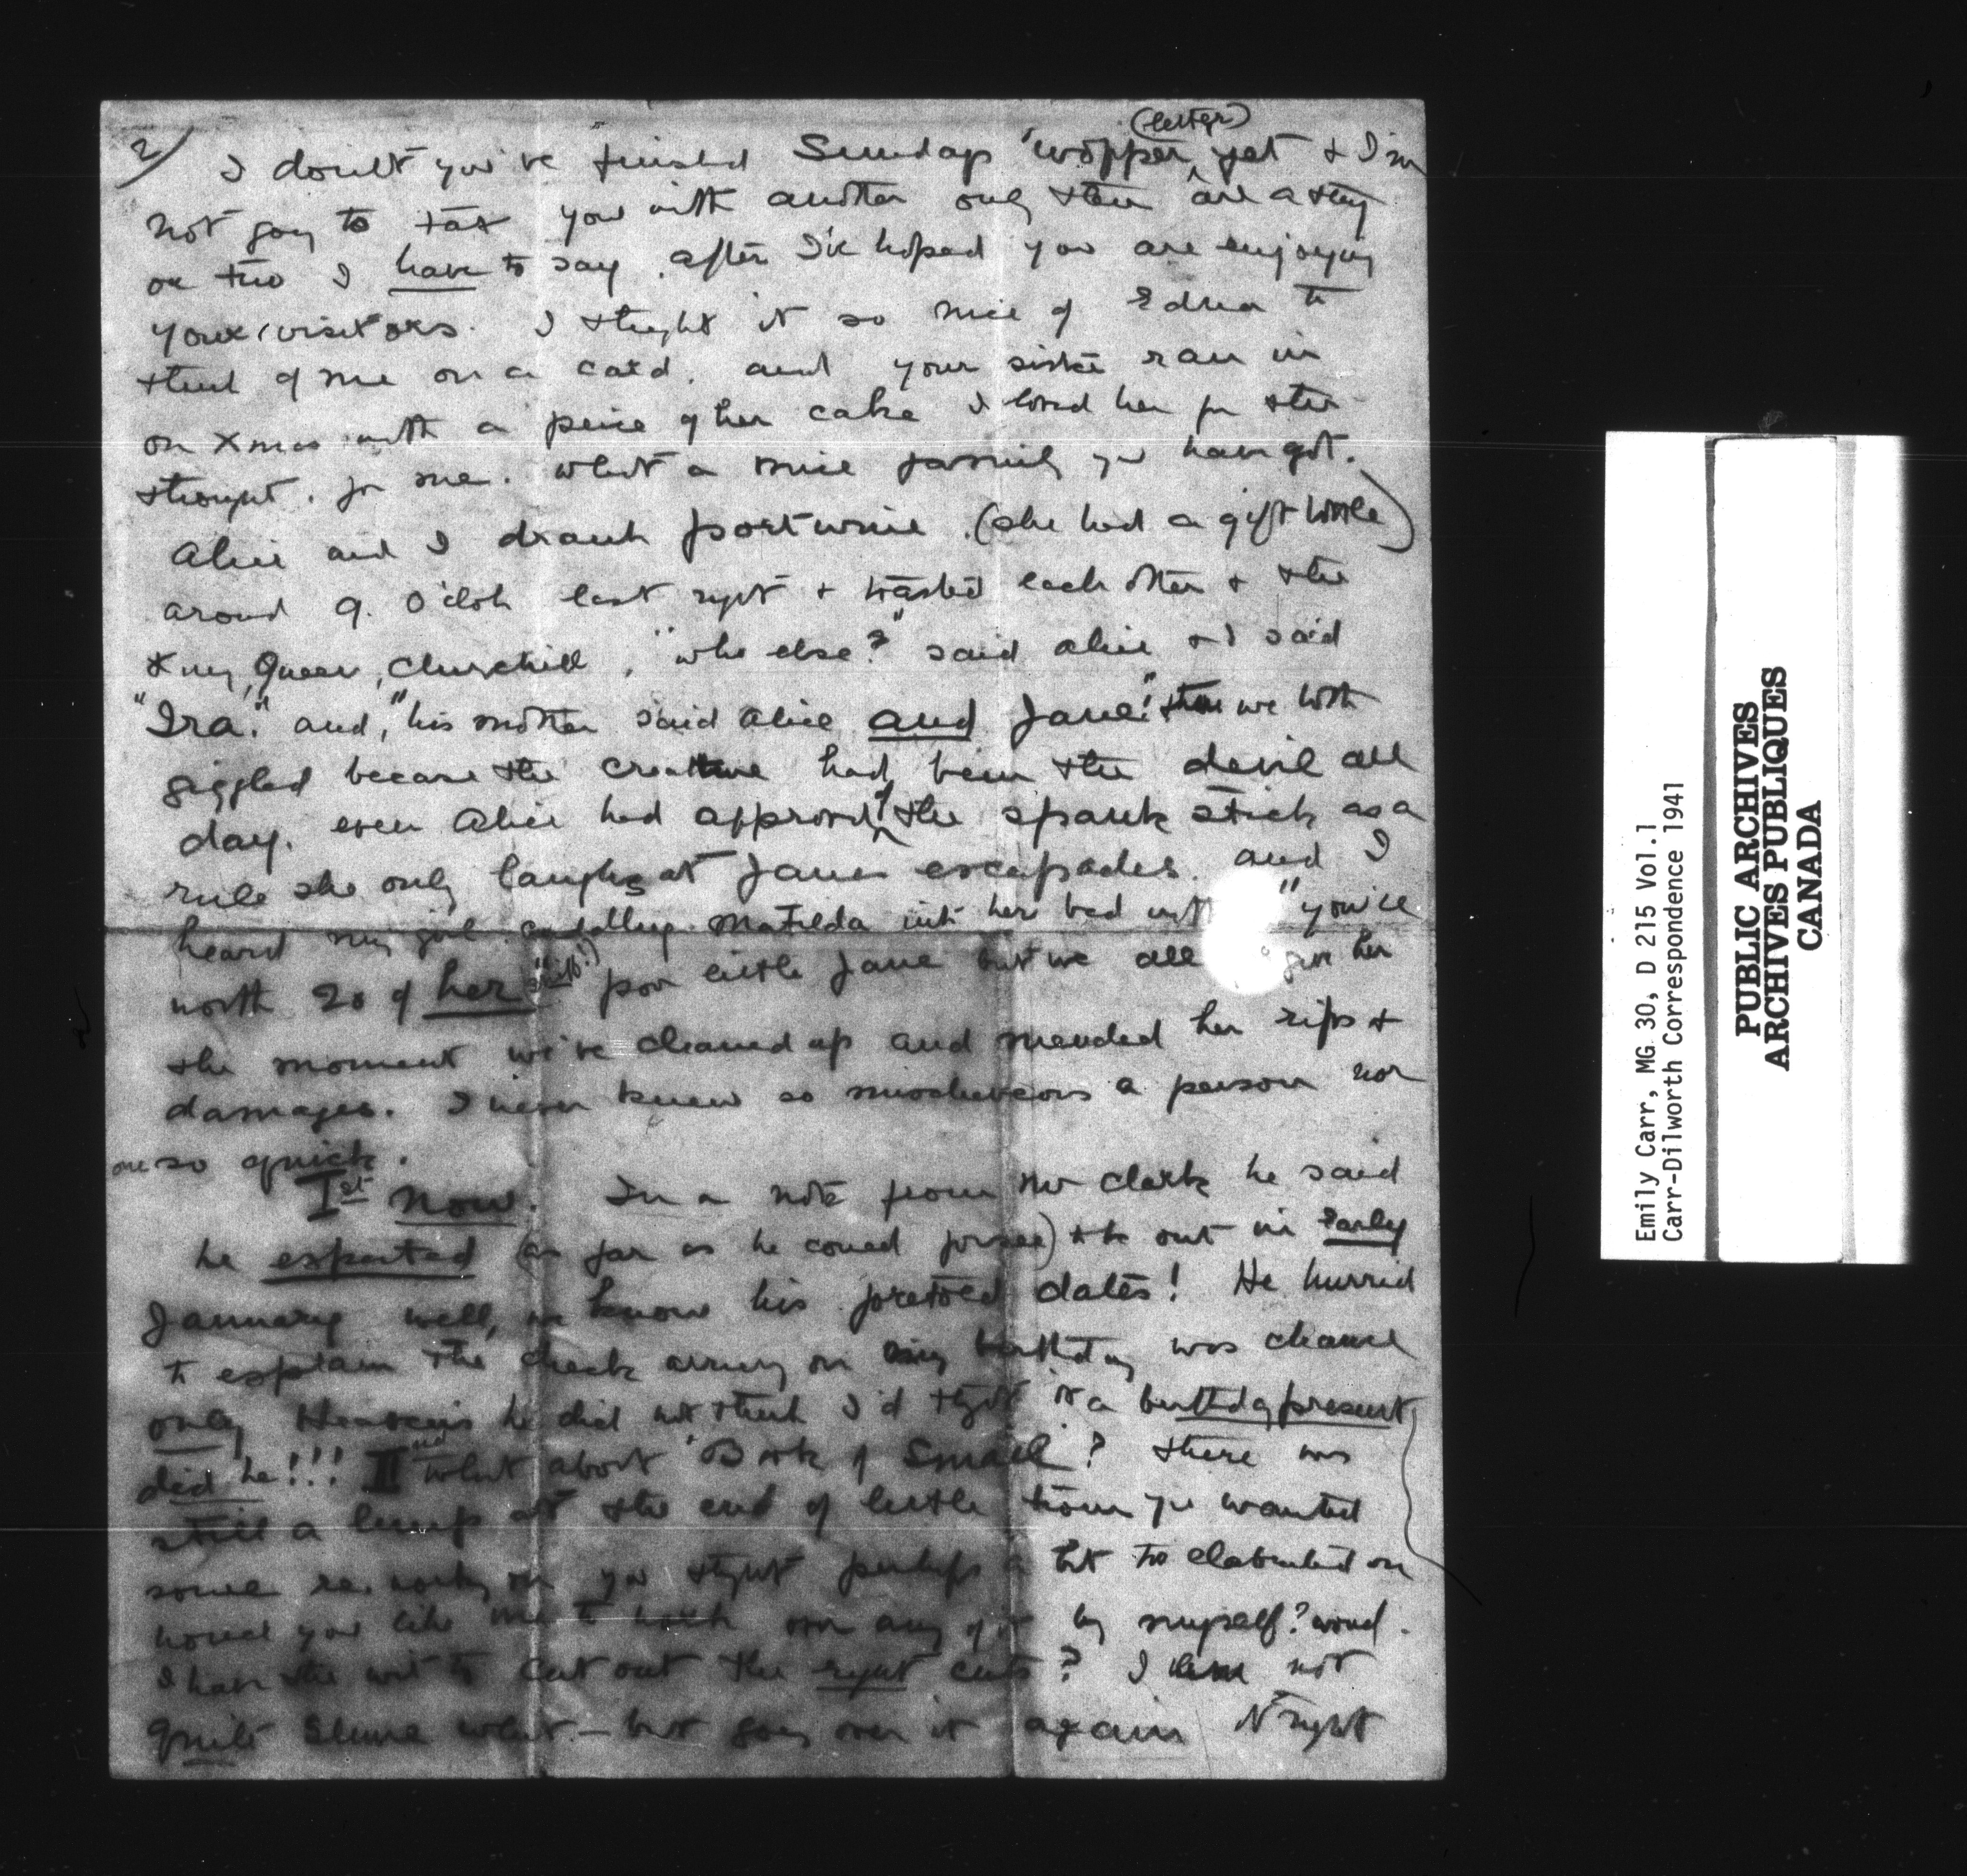 2/ (letter)
I doubt you've finished Sunday "wopper, yet & I'm
not going to tax you with another only there are a thing
or two I have to say. after I've hoped you are enjoying
your visitors. I thought it so nice of Edna to
think of me on a card. and your sister ran in
on Xmas with a peice of her cake I loved her for the
thought. for me. what a nice family you have got.
Alice and I drank port wine. (she had a gift bottle)
around 9. O'clok last night & toasted each other & the
King, Queen, Churchill, "who else?" said Alice & I said
"Ira." and, "his mother said Alice and Jane" then we both
giggled because the creature had been the devil all
day. even Alice had approved of the spank stick as a
rule she only laughs at Janes escapades. and I
heard my girl cuddling Matilda into her bed with "you're
worth 20 of her" poor little Jane but we all her
the moment we've cleaned up and mended her rips &
damages. I never knew so mischeveous a person nor
one so quick.
Ist Now. In a note from Mr Clark he said
he expected (as far as he could forsee) to be out in Early
January well, we know his foretold dates! He hurried
to explain the check arriving on my birthday was chance
only Heavens he did not think I'd thght it a birthday present
did he!!! IInd What about "Book of Small? There was
still a lump at the end of little town you wanted
some re working on you thght perhaps a bit too elaborated on
would you like me to work over any of it by myself? would
I have the wit to cut out the right cuts? I am not
quite shure what — but going over it again N might
Emily Carr, MG 30, D 215 Vol.1
Carr-Dilworth Correspondence 1941
PUBLIC ARCHIVES
ARCHIVES PUBLIQUES
CANADA